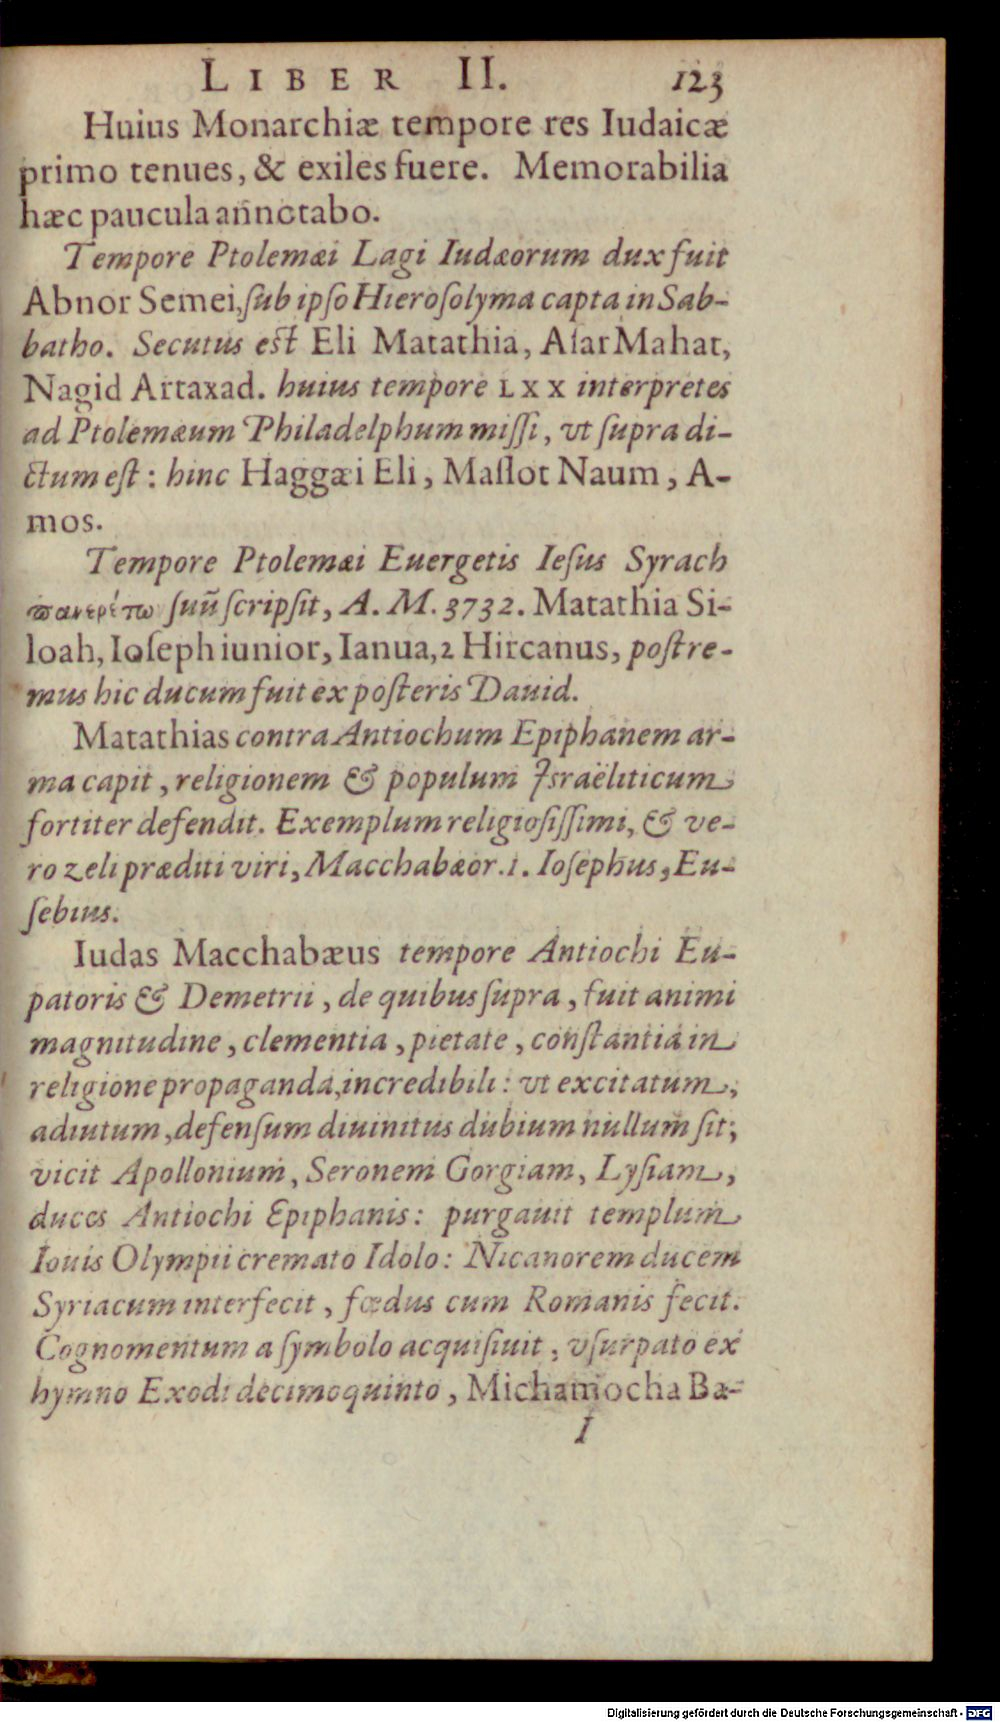 LIBER II. 123
Huius Monarchiæ tempore res Iudaicæ
primo tenues, & exiles fuere. Memorabilia
hæc paucula añnotabo.
Tempore Ptolemæi Lagi Iudæorum dux fuit
Abnor Semei, ſub ipſo Hieroſolyma capta in Sab-
batho. Secutus eſt Eli Matathia, Aſar Mahat,
Nagid Artaxad. huius tempore LXX interpretes
ad Ptolemæum Philadelphum miſſi, vt ſupra di-
ctum eſt: hinc Haggæi Eli, Maſlot Naum, A-
mos.
Tempore Ptolemæi Euergetis Ieſus Syrach
ϖανερέτω ſuũ ſcripſit, A. M. 3732. Matathia Si-
loah, Ioſeph iunior, Ianua, 2 Hircanus, poſtre-
mus hic ducum fuit ex poſteris Dauid.
Matathias contra Antiochum Epiphanem ar-
ma capit, religionem & populum Israëliticum
fortiter defendit. Exemplum religioſiſſimi, & ve-
ro zeli præditi viri, Macchabæor. 1. Ioſephus, Eu-
ſebius.
Iudas Macchabæus tempore Antiochi Eu-
patoris & Demetrii, de quibus ſupra, fuit animi
magnitudine, clementia, pietate, conſtantia in
religione propaganda, incredibili: vt excitatum,
adiutum, defenſum diuinitus dubium nullum ſit;
vicit Apollonium, Seronem Gorgiam, Lyſiam,
duces Antiochi Epiphanis: purgauit templum
Iouis Olympii cremato Idolo: Nicanorem ducem
Syriacum interfecit, fœdus cum Romanis fecit.
Cognomentum a ſymbolo acquiſiuit, vſurpato ex
hymno Exodi decimoquinto, Michamocha Ba-
I
Digitalisierung gefördert durch die Deutsche Forschungsgemeinschaft - DFG